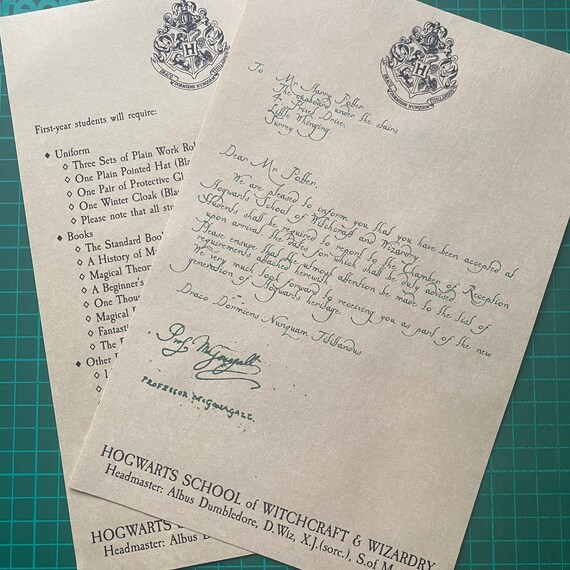 First-year students will require:
Uniform
Three Sets of Plain Work Ro
One Plain Pointed Hat (Bla
One Pair of Protective Gl
One Winter Cloak (Blac
Please note that all stu
Books
The Standard Boo
A History of M
Magical Theor
A Beginner's
One Thou
Magical
Fantasti
The
Other
1
HOGWARTS S
Headmaster: Albus D
H
DRACO DORMIENS NUNQUAM TITILLANDUS
To Mr Harry Potter
The cupboard under the stairs
4 Privet Drive,
Little Whinging
Surrey
Dear Mr. Potter,
We are pleased to inform you that you have been accepted at
Hogwarts School of Witchcraft and Wizardry
Students shall be required to report to the Chamber of Reception
upon arrival, the dates for which shall be duly advised
Please ensure that the utmost attention be made to the list of
requirements attached herewith.
We very much look forward to receiving you as part of the new
generation of Hogwarts heritage.
Draco Dormiens Nunquam Titillandus
Prof. McGonagall
PROFESSOR McGONAGALL
HOGWARTS SCHOOL of WITCHCRAFT & WIZARDRY
Headmaster: Albus Dumbledore, D.Wiz, X.J.(sorc.), S.of M